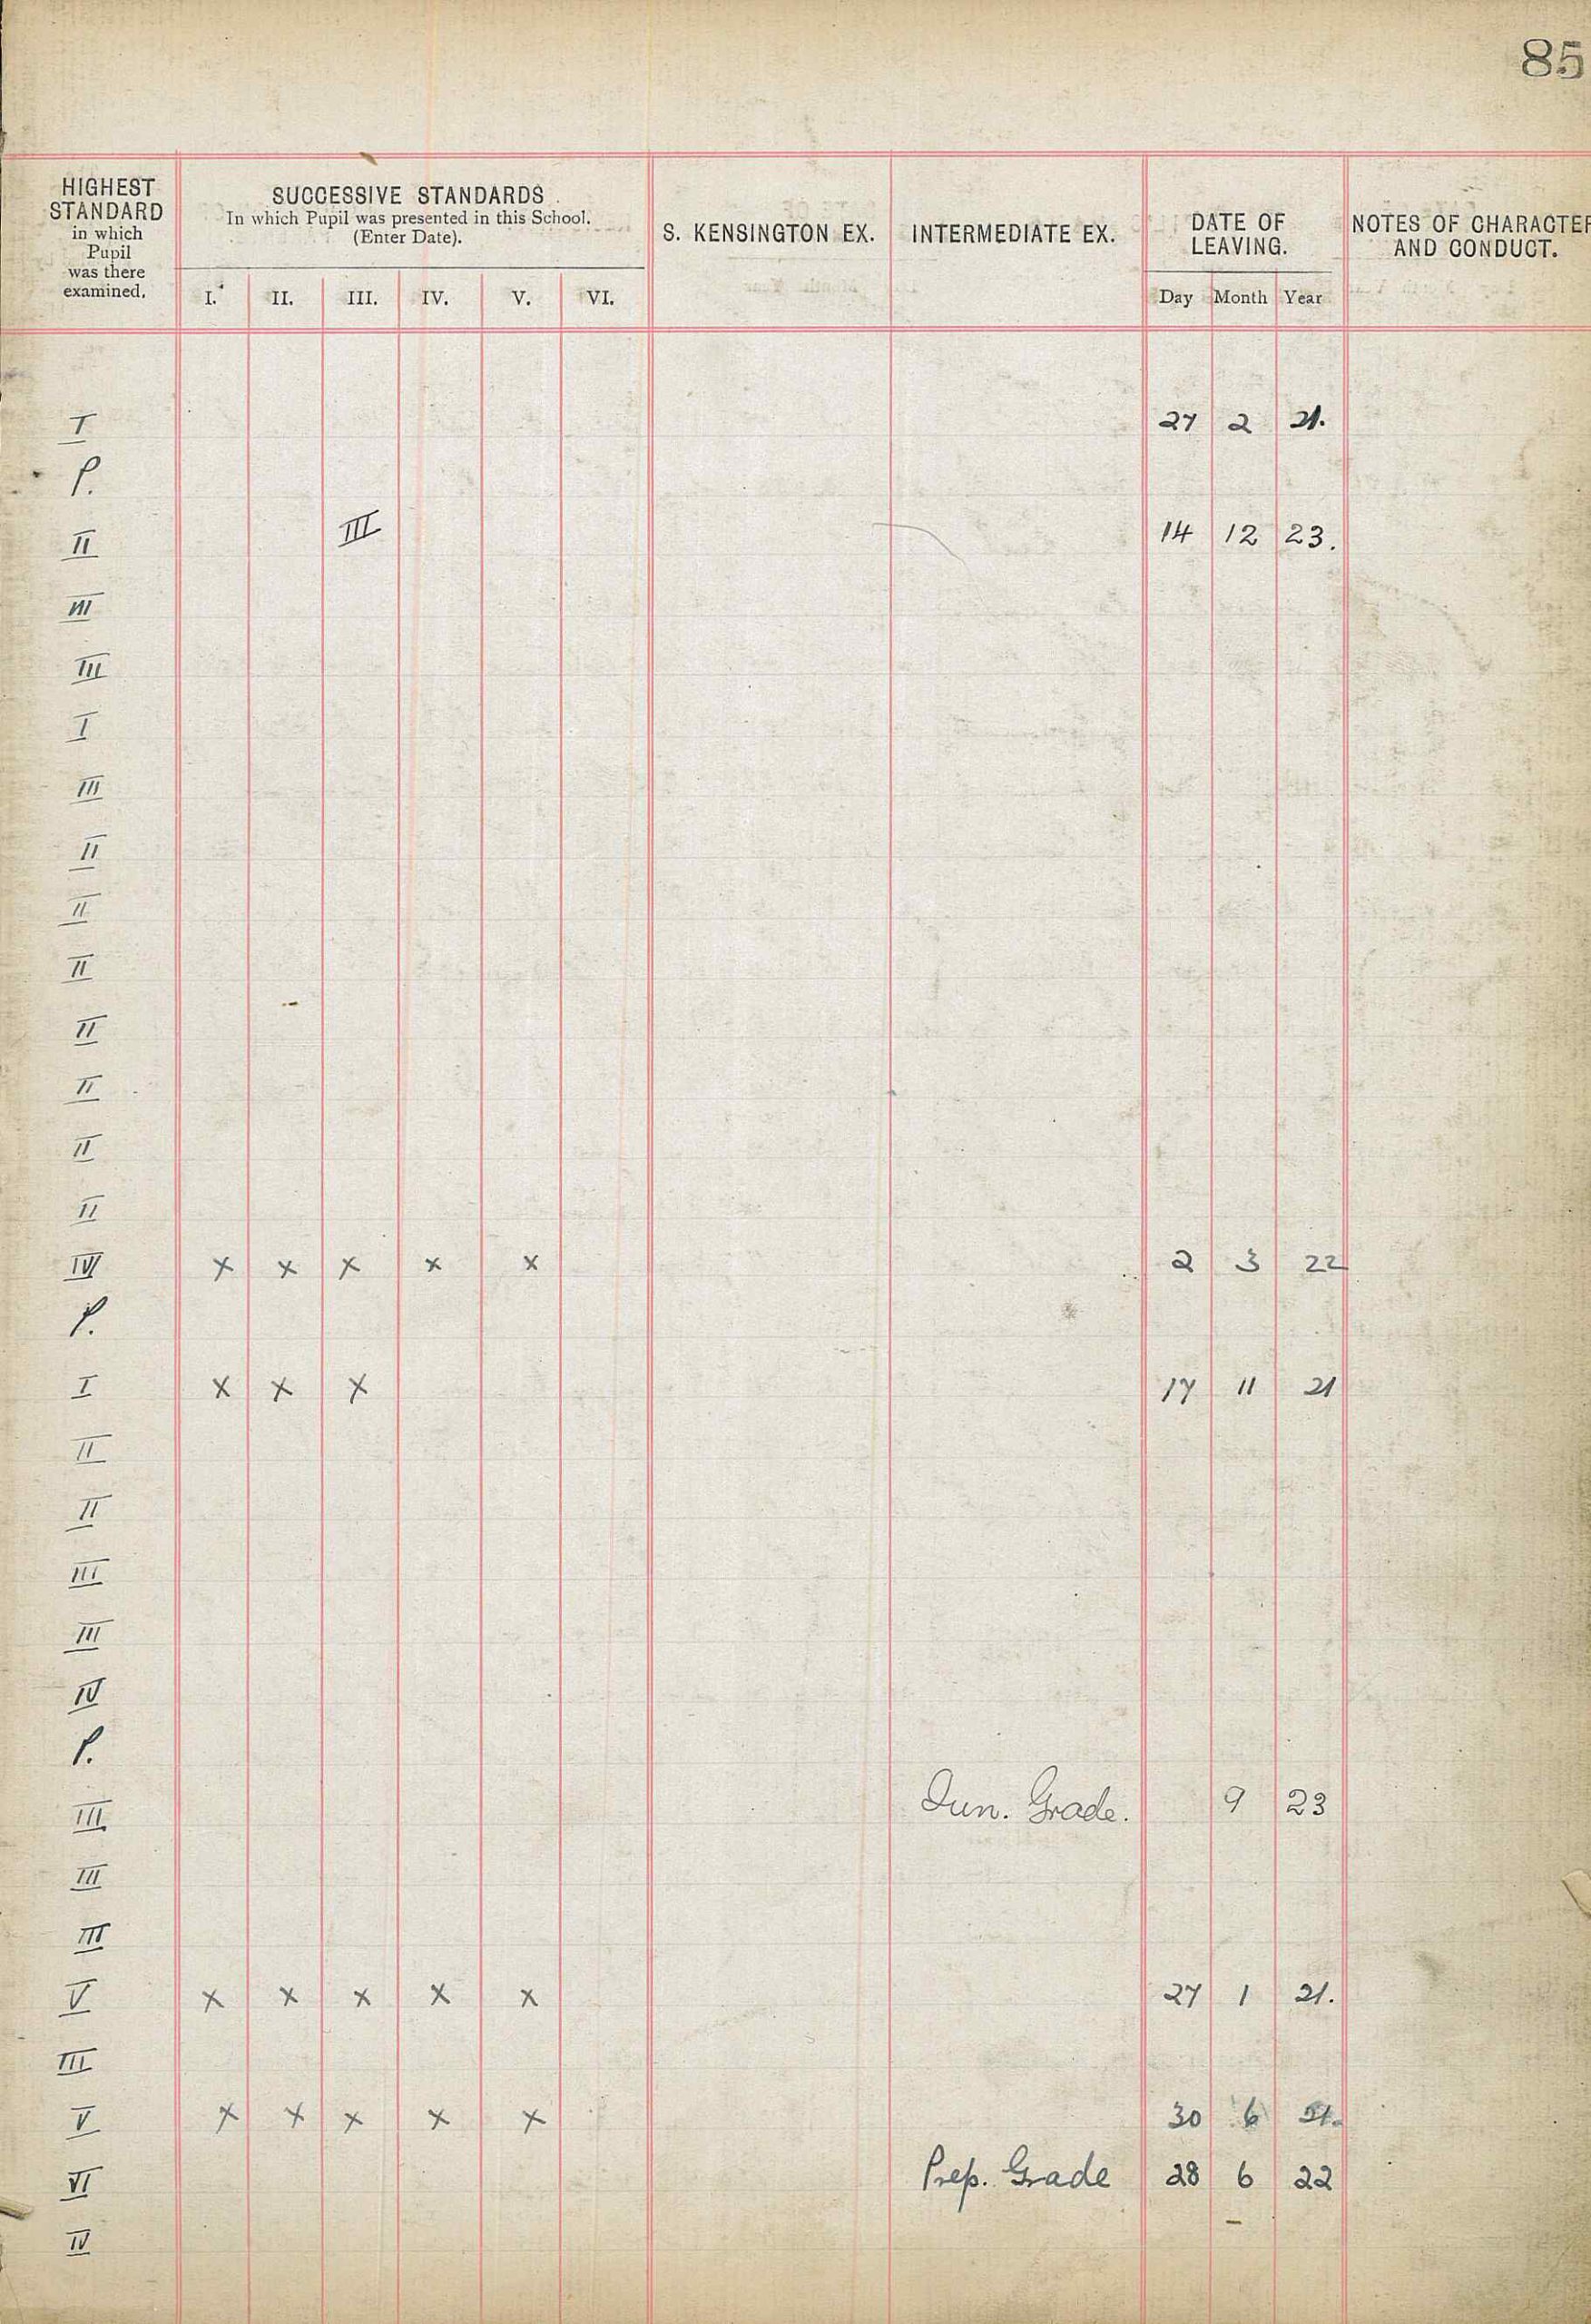 85
HIGHEST STANDARD in which Pupil was there examined.
SUCCESSIVE STANDARDS
In which Pupil was presented in this School.
(Enter Date).
I. II. III. IV. V. VI.
S. KENSINGTON EX.
INTERMEDIATE EX.
DATE OF LEAVING.
Day Month Year
NOTES OF CHARACTER AND CONDUCT.
I 27 2 21.
P.
II III 14 12 23.
III
III
I
III
II
II
II
II
II
II
II
IV x x x x x 2 3 22
P.
I x x x 17 11 21
II
II
III
III
IV
P.
III Jun. Grade. 9 23
III
III
V x x x x x 27 1 21.
III
V x x x x x 30 6 21.
VI Prep. Grade 28 6 22
IV